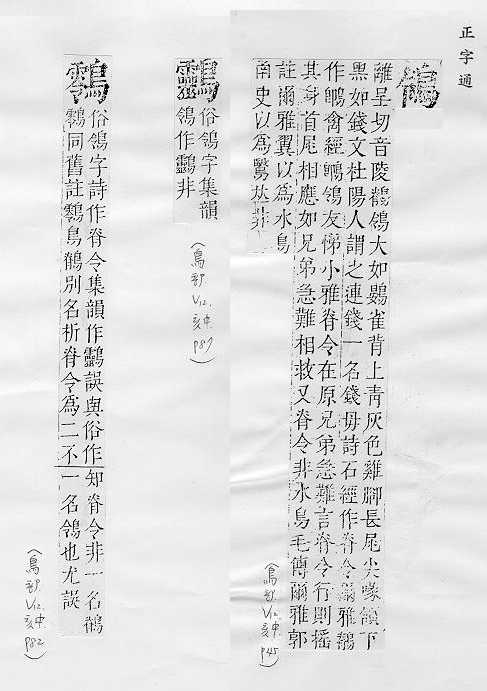 正字通
鴒
離呈切音陵鶺鴒大如鷃雀背上青灰色雞腳長尾尖喙頷下
黑如錢文杜陽人謂之連錢一名錢母詩石經作脊令爾雅鶺
作䳭禽經䳭鴒友悌小雅脊令在原兄弟急難言脊令行則搖
其身首尾相應如兄弟急難相救又脊令非水鳥毛傳爾雅郭
註爾雅翼以為水鳥
南史以為鷖𠀤非
俗鴒字集韻
鴒作鸖非
(鳥部 V12. 亥中. p87)
俗鴒字詩作脊令集韻作鸖誤與俗作
同舊註鳥鶺別名析脊令為二不
知脊令非一名鶺
一名鴒也尤誤
(鳥部. V12. 亥中. p82)
(鳥部. V12. 亥中. p45)